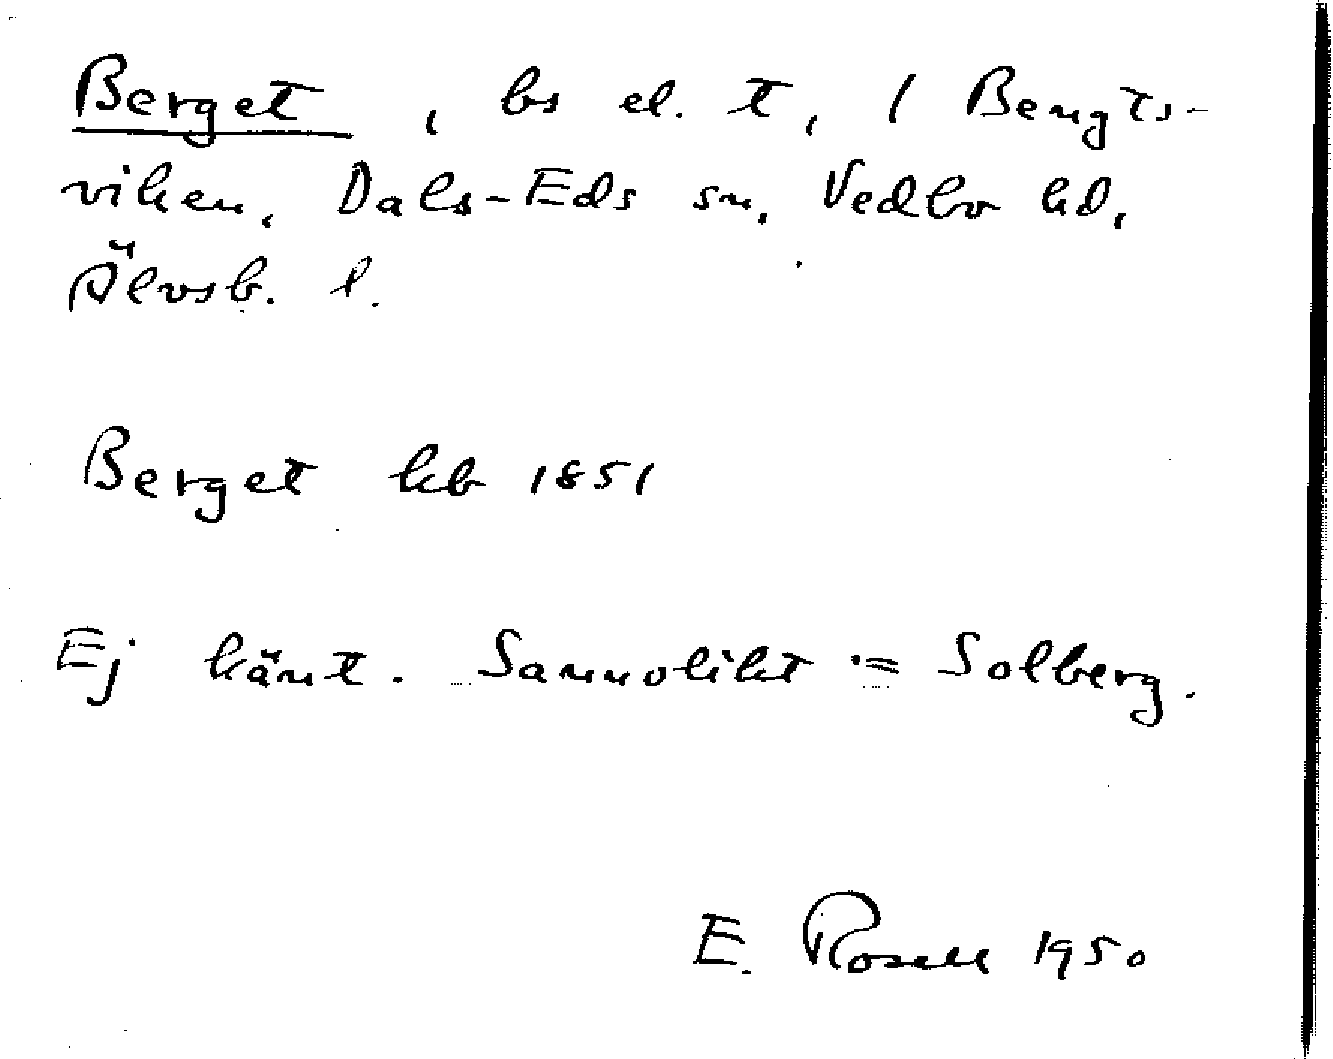 Berget, bs el. t, i Bengts-
viken, Dals-Eds sn, Vedbo hd,
Älvsb. l.
Berget hb 1851
Ej känt. Sannolikt = Solberg.
E. Rosell 1950